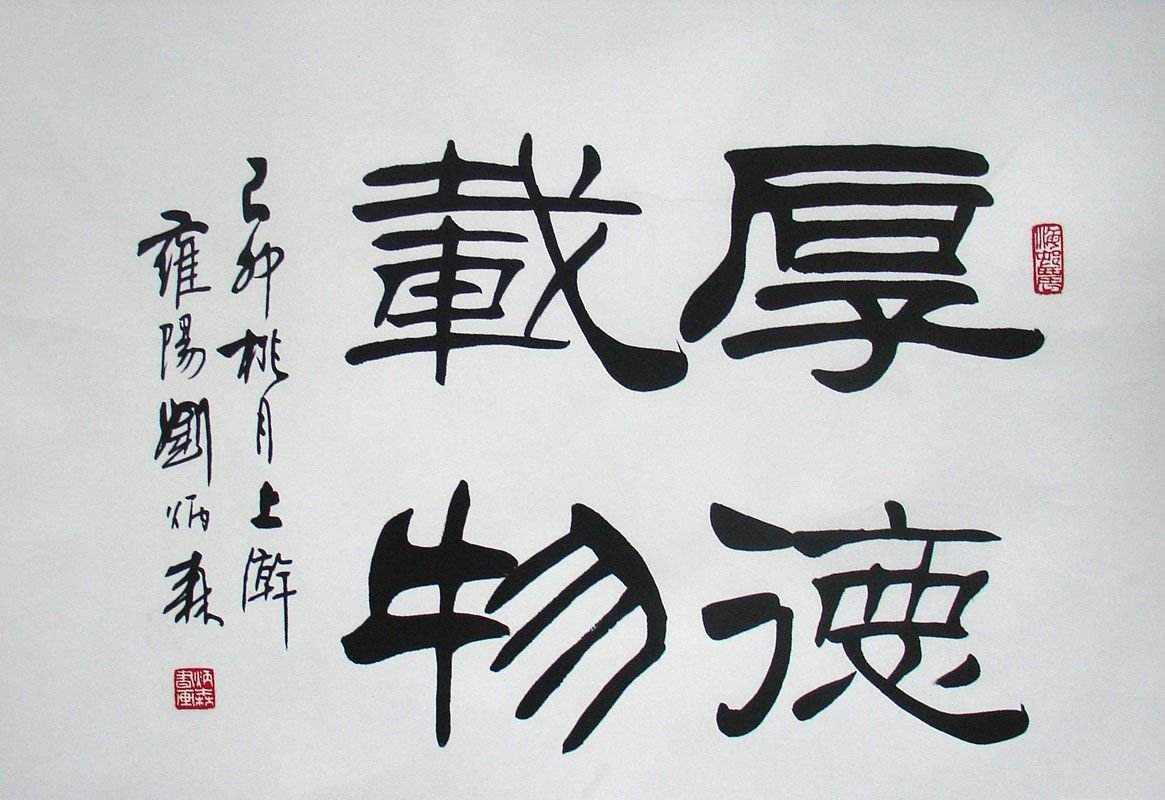 厚德
載物
己卯桃月上澣
雍陽劉炳森
炳森書画